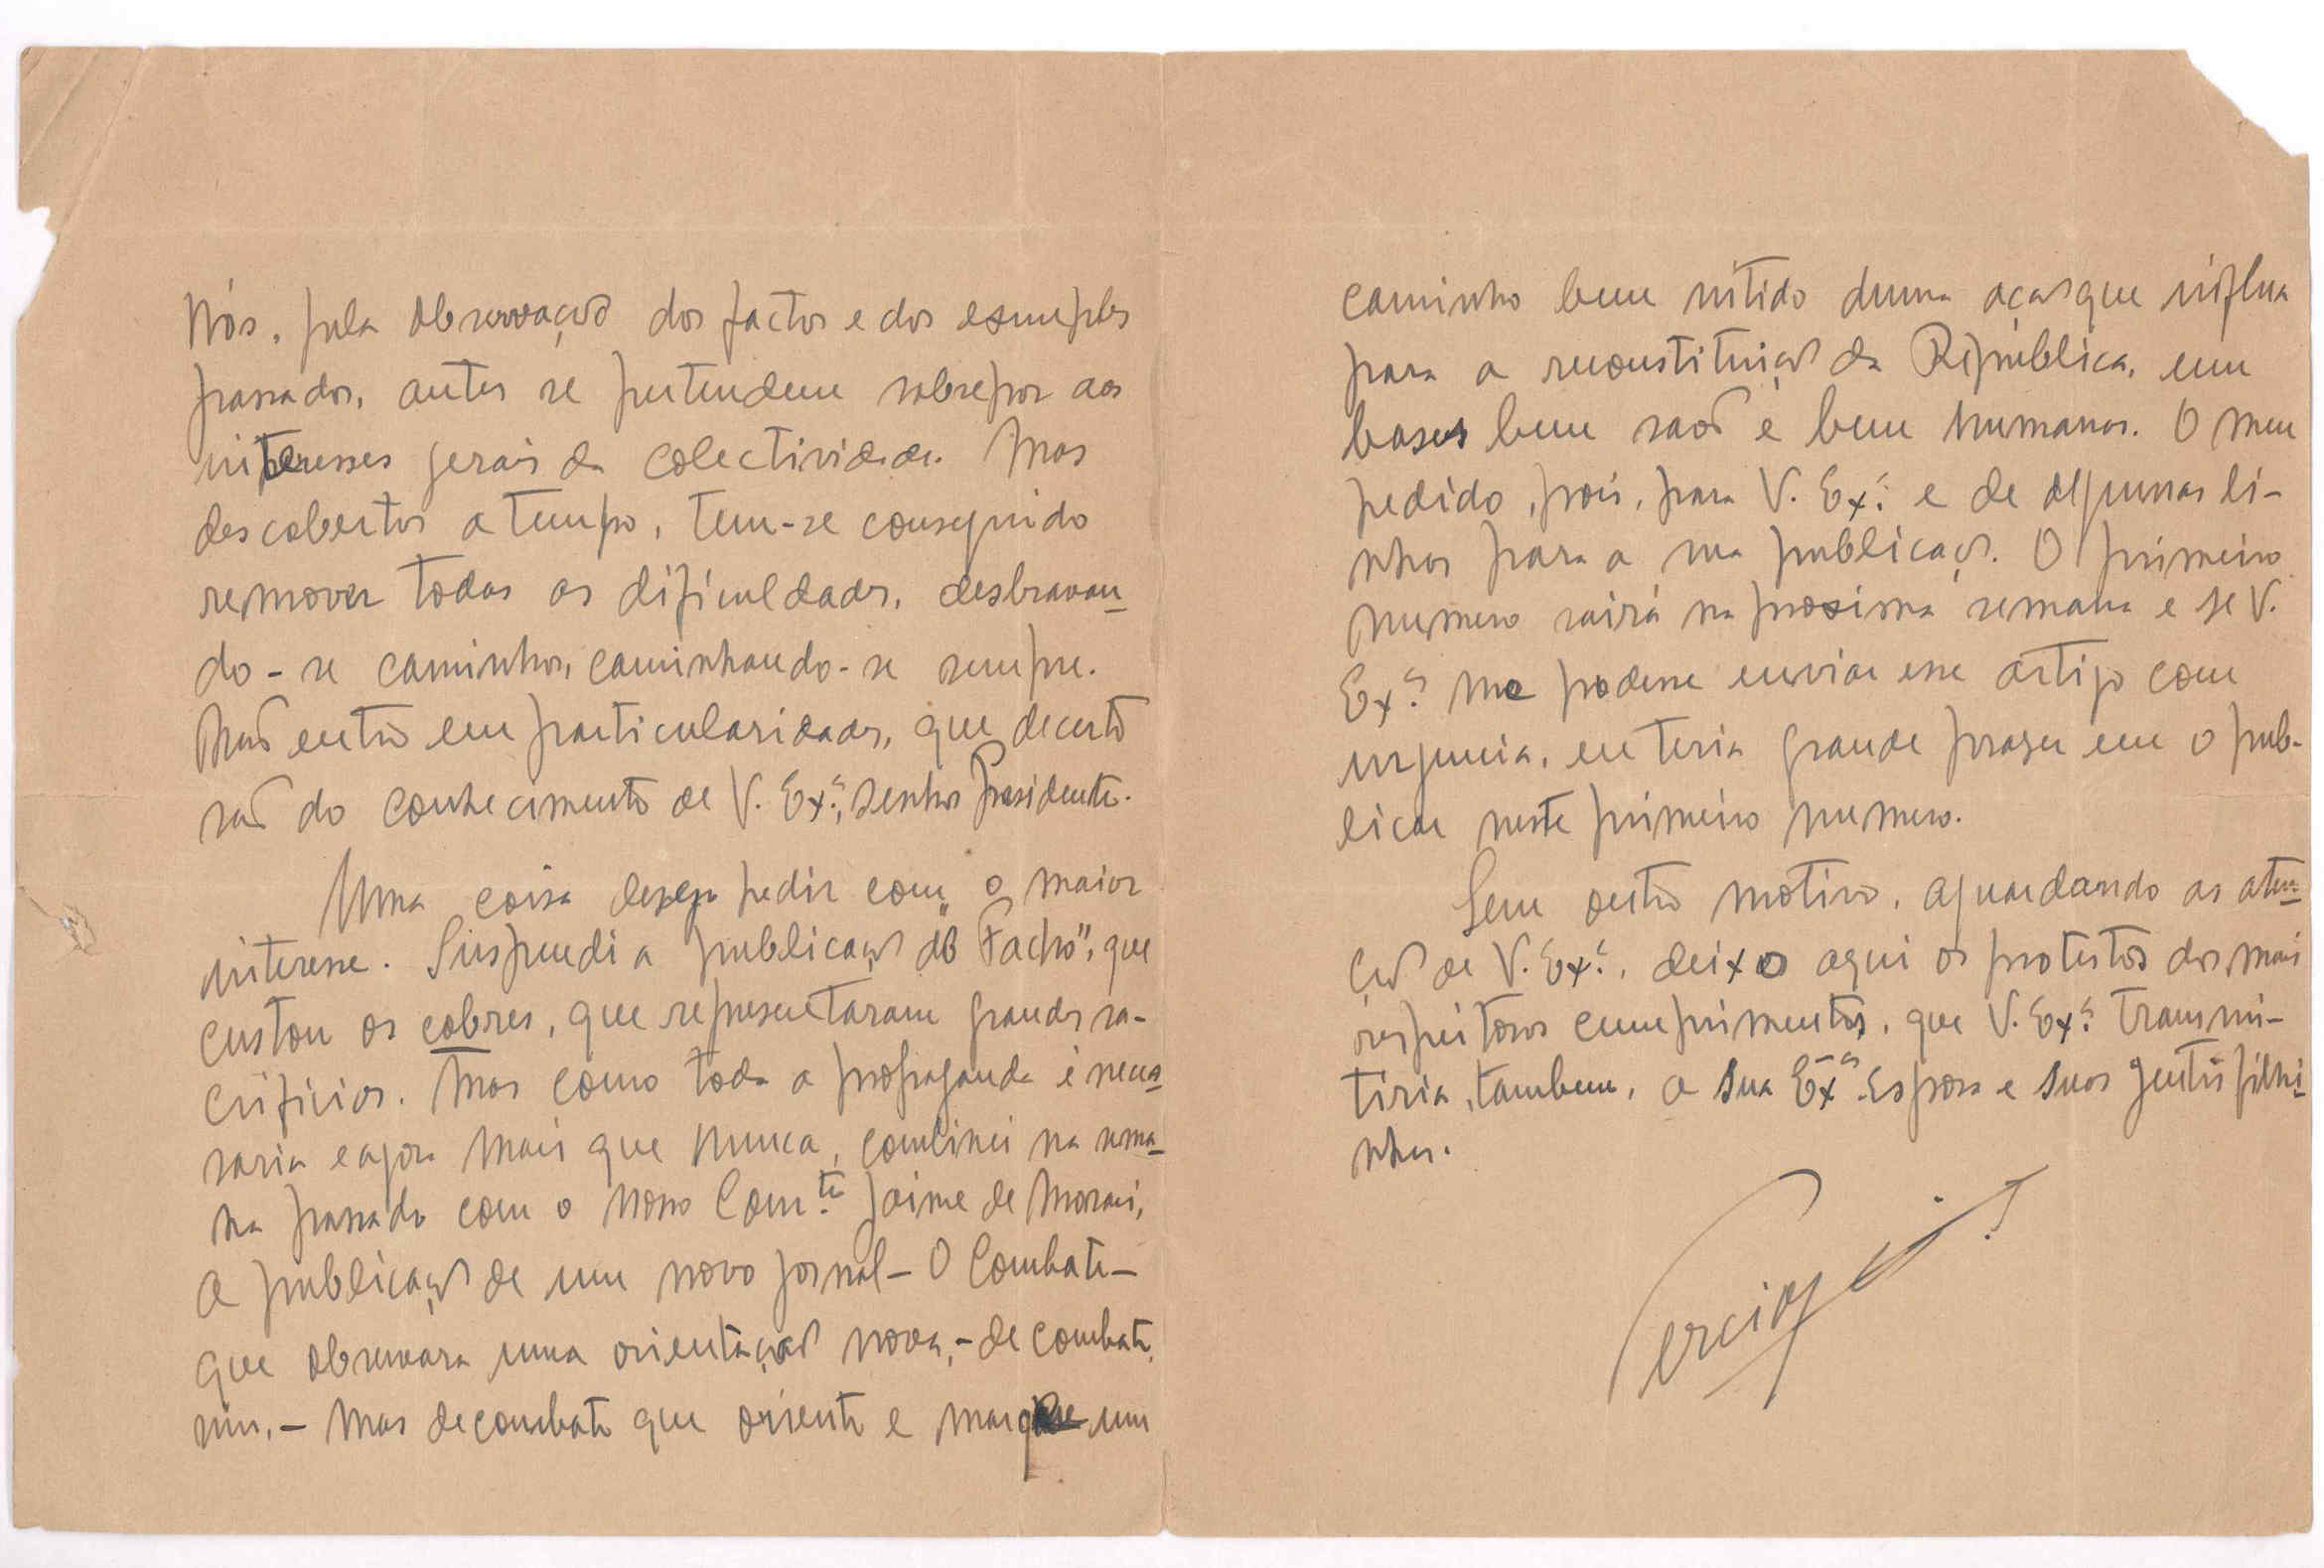 Nós, pela observação dos factos e dos exemplos
passados, antes se pretendem sobrepor aos
interesses gerais da colectividade. Mas
descobertos a tempo, tem-se conseguido
remover todas as dificuldades, desbravan-
do-se caminhos, caminhando-se sempre.
Não entro em particularidades, que decerto
são do conhecimento de V. Exª, senhor Presidente.
Uma coisa desejo pedir com o maior
interesse. Suspendi a publicação do "Facho", que
custou os cobres, que representaram grandes sa-
crificios. Mas como toda a propaganda é neces-
saria e agora mais que nunca, combinei na sema-
na passada com o nosso Com.te Jaime de Morais,
a publicação de um novo jornal - O Combate -
que observara uma orientação nova, - de combate,
sim, - mas de combate que oriente e marque um
caminho bem nitido duma acção que influa
para a reconstituição da República, em
bases bem sãos e bem humanas. O meu
pedido, pois, para V. Exª é de algumas li-
nhas para a sua publicação. O primeiro
numero sairá na proxima semana e se V.
Exª me podesse enviar esse artigo com
urgencia, eu teria grande prazer em o pub-
licar neste primeiro numero.
Sem outro motivo, aguardando as aten-
ção de V. Exª, deixo aqui os protestos dos mais
respeitosos cumprimentos, que V. Exª transmi-
tiria, tambem, a sua Exª Esposa e suas gentis filhi-
nhas.